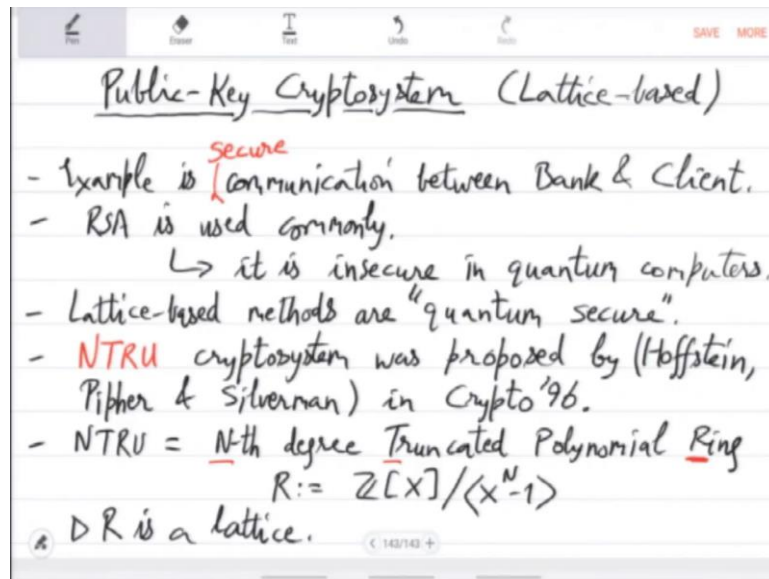 Pen Eraser Text Undo Redo SAVE MORE
Public-Key Cryptosystem (Lattice-based)
secure
- Example is communication between Bank & Client.
- RSA is used commonly.
↳ it is insecure in quantum computers.
- Lattice-based methods are "quantum secure".
- NTRU cryptosystem was proposed by (Hoffstein,
Pipher & Silverman) in Crypto'96.
- NTRU = N-th degree Truncated Polynomial Ring
R:= ℤ[X]/⟨X^N-1⟩
▷ R is a lattice.
< 143/143 +